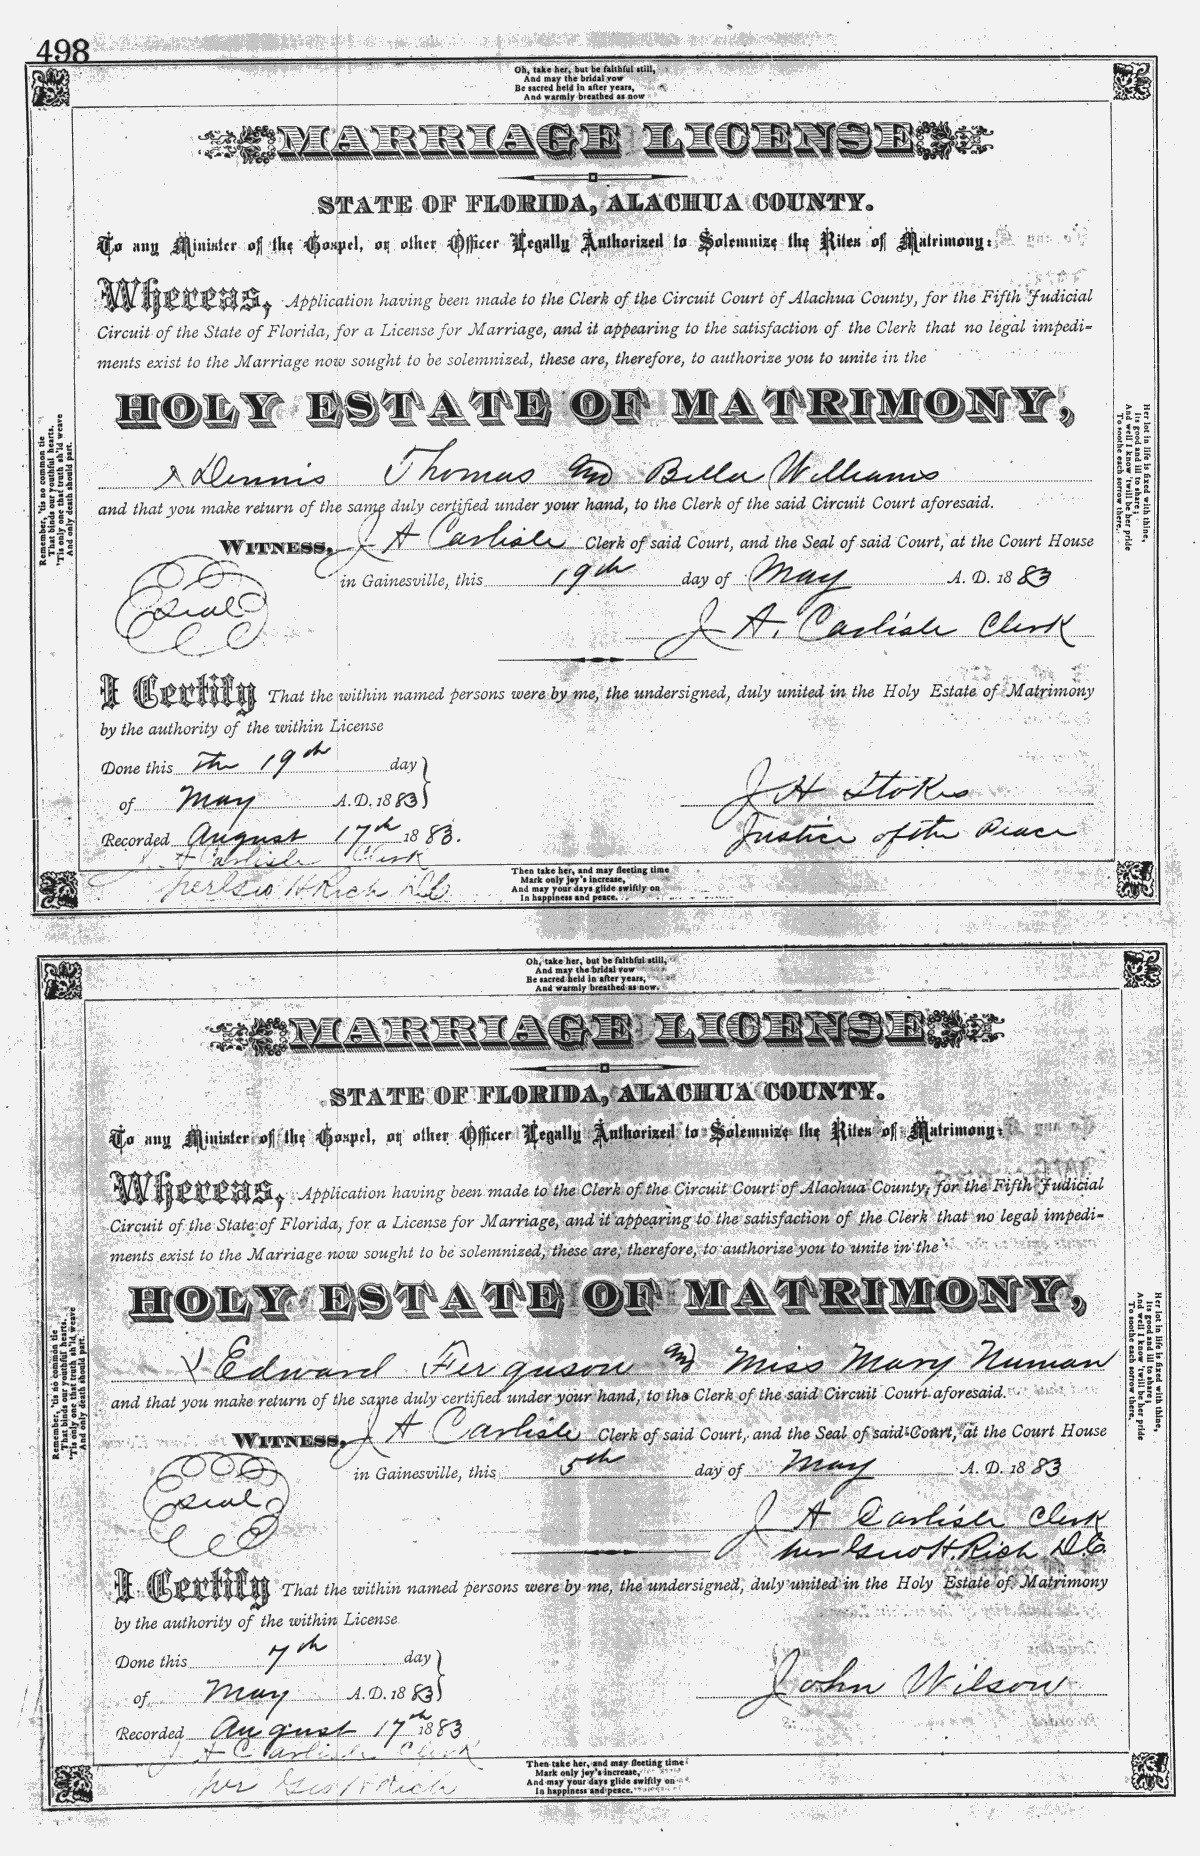 498
Oh, take her, but be faithful still,
And may the bridal vow
Be sacred held in after years,
And warmly breathed as now
MARRIAGE LICENSE
STATE OF FLORIDA, ALACHUA COUNTY.
To any Minister of the Gospel, or other Officer Legally Authorized to Solemnize the Rites of Matrimony:
Whereas, Application having been made to the Clerk of the Circuit Court of Alachua County, for the Fifth Judicial
Circuit of the State of Florida, for a License for Marriage, and it appearing to the satisfaction of the Clerk that no legal impedi-
ments exist to the Marriage now sought to be solemnized, these are, therefore, to authorize you to unite in the
HOLY ESTATE OF MATRIMONY,
Dennis Thomas and Bella Williams
and that you make return of the same duly certified under your hand, to the Clerk of the said Circuit Court aforesaid.
WITNESS, J A Carlisle Clerk of said Court, and the Seal of said Court, at the Court House
in Gainesville, this 19th day of May A. D. 1883
Seal
J A. Carlisle Clerk
I Certify That the within named persons were by me, the undersigned, duly united in the Holy Estate of Matrimony
by the authority of the within License
Done this the 19th day
of May A.D. 1883
J H Stokes
Recorded August 17th 1883.
Justice of the Peace
J A Carlisle Clerk
per Geo H Rich D C
Remember, 'tis no common tie
That binds our youthful hearts,
'Tis only one that truth sh'ld weave
And only death should part.
Her lot in life is fixed with thine,
Its good and ill to share;
And well I know 'twill be her pride
To soothe each sorrow there.
Then take her, and may fleeting time
Mark only joy's increase,
And may your days glide swiftly on
In happiness and peace.
Oh, take her, but be faithful still,
And may the bridal vow
Be sacred held in after years,
And warmly breathed as now.
MARRIAGE LICENSE
STATE OF FLORIDA, ALACHUA COUNTY.
To any Minister of the Gospel, or other Officer Legally Authorized to Solemnize the Rites of Matrimony:
Whereas, Application having been made to the Clerk of the Circuit Court of Alachua County, for the Fifth Judicial
Circuit of the State of Florida, for a License for Marriage, and it appearing to the satisfaction of the Clerk that no legal impedi-
ments exist to the Marriage now sought to be solemnized, these are, therefore, to authorize you to unite in the
HOLY ESTATE OF MATRIMONY,
Edward Ferguson and Miss Mary Numan
and that you make return of the same duly certified under your hand, to the Clerk of the said Circuit Court aforesaid.
WITNESS, J A Carlisle Clerk of said Court, and the Seal of said Court, at the Court House
in Gainesville, this 5th day of May A. D. 1883
Seal
J A Carlisle Clerk
per Geo H. Rich D.C.
I Certify That the within named persons were by me, the undersigned, duly united in the Holy Estate of Matrimony
by the authority of the within License
Done this 7th day
of May A.D. 1883
John Wilson
Recorded August 17th 1883
J A Carlisle Clerk
per Geo H Rich
Remember, 'tis no common tie
That binds our youthful hearts,
'Tis only one that truth sh'ld weave
And only death should part.
Her lot in life is fixed with thine,
Its good and ill to share;
And well I know 'twill be her pride
To soothe each sorrow there.
Then take her, and may fleeting time
Mark only joy's increase,
And may your days glide swiftly on
In happiness and peace.